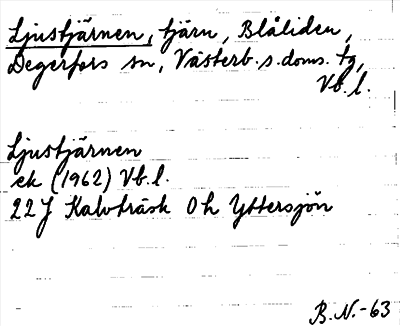 Ljustjärnen, tjärn, Blåliden,
Degerfors sn, Västerb. s. doms. tg,
Vb. l.
Ljustjärnen
ek (1962) Vb. l.
22J Kalvträsk 0h Yttersjön
B. N. -63